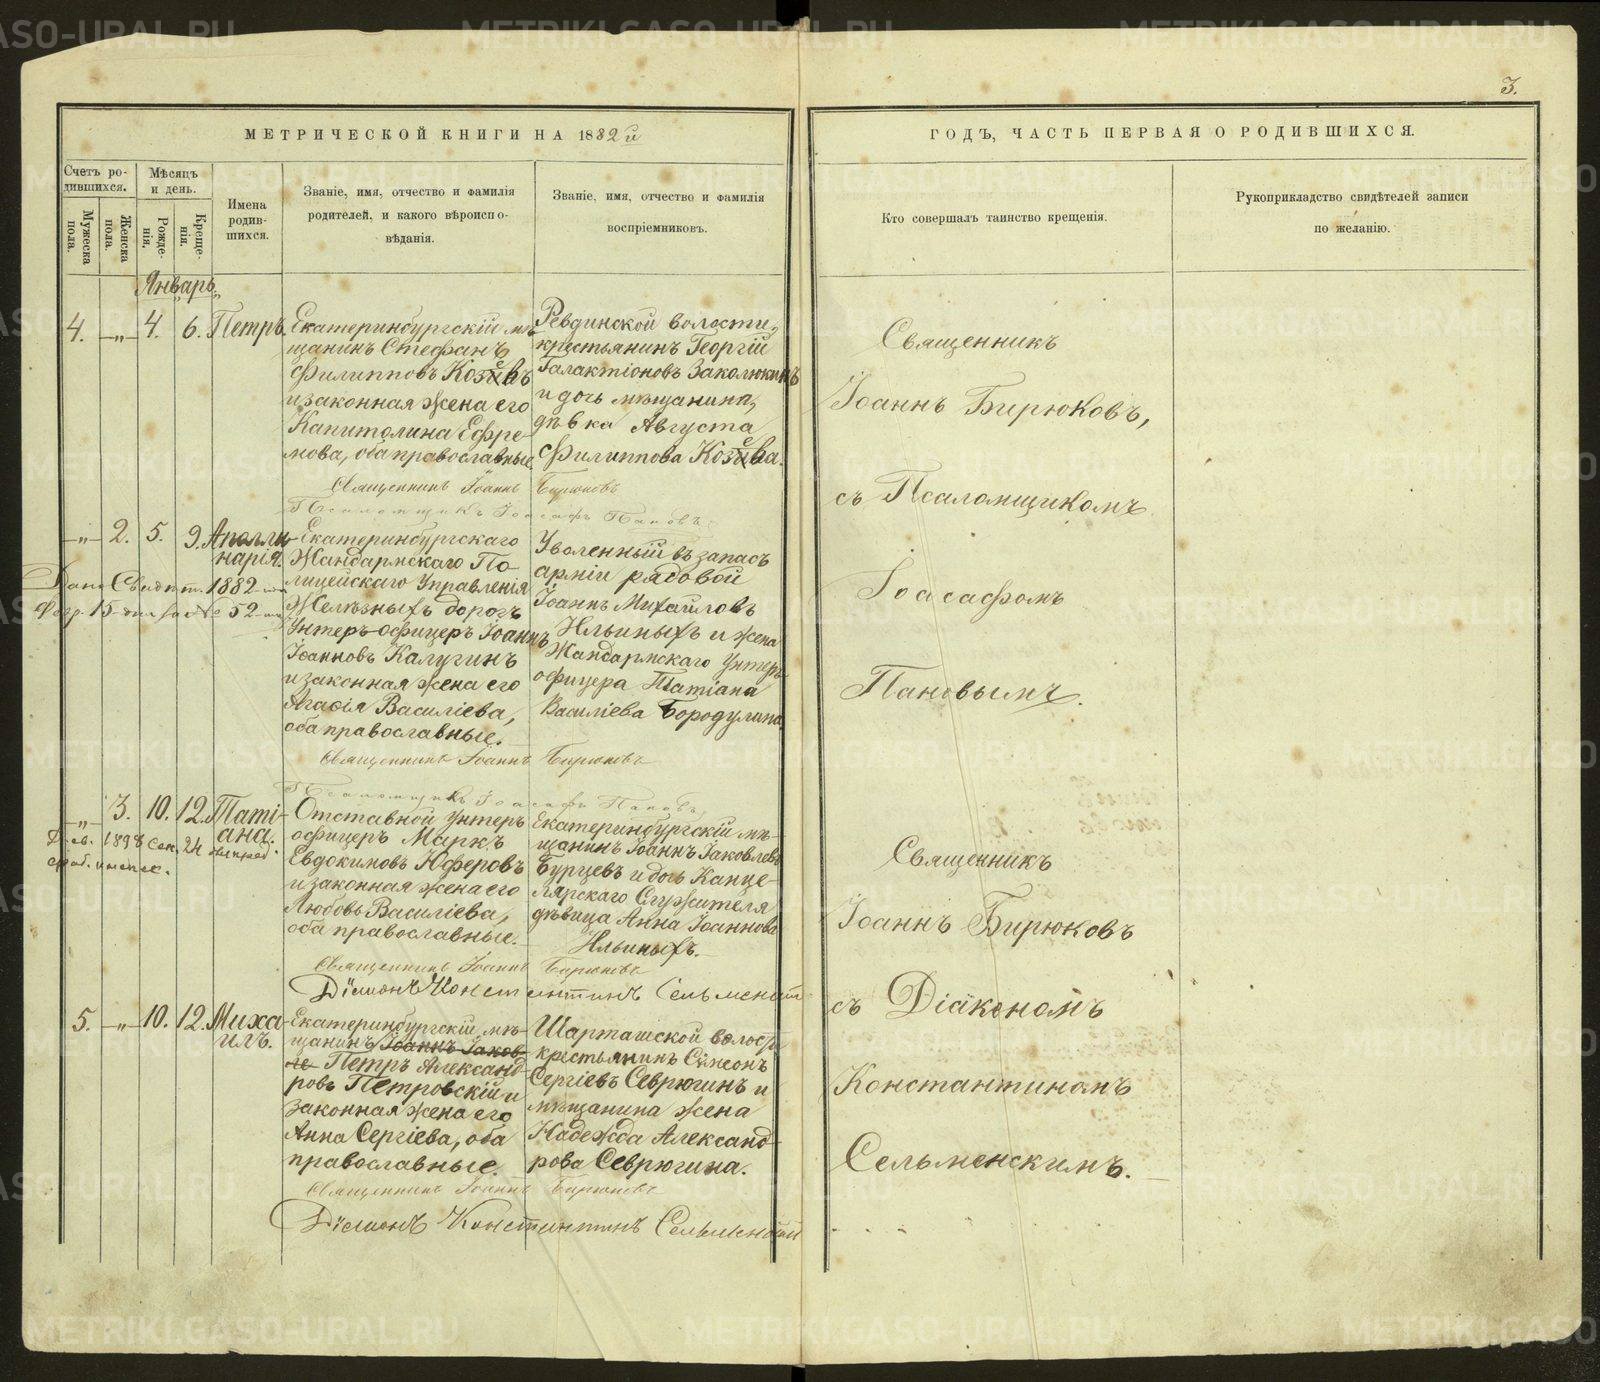 3.
МЕТРИЧЕСКОЙ КНИГИ НА 1882й
ГОДЪ, ЧАСТЬ ПЕРВАЯ О РОДИВШИХСЯ.
Счетъ ро-
дившихся.
Мужеска
пола.
Женска
пола.
Мѣсяцъ
и день.
Рожде-
нія.
Креще-
нія.
Имена
родив-
шихся.
Званіе, имя, отчество и фамилія
родителей, и какого вѣроиспо-
вѣданія.
Званіе, имя, отчество и фамилія
воспріемниковъ.
Кто совершалъ таинство крещенія.
Рукоприкладство свидѣтелей записи
по желанію.
Январь.
4. —„— 4. 6. Петръ
Екатеринбургскій мѣ-
щанинъ Стефанъ
Филипповъ Козевъ
и законная жена его
Капитолина Ефре-
мова, оба православные.
Ревдинской волости,
крестьянинъ Георгій
Галактіоновъ Заколюкинъ
и дочь мѣщанина,
дѣвка Августа
Филиппова Козева.
Священникъ Іоаннъ Бирюковъ
Псаломщикъ Іоасафъ Пановъ.
Священникъ
Іоаннъ Бирюковъ,
съ Псаломщикомъ
Іоасафомъ
Пановымъ.
—„— 2. 5. 9. Аполли-
нарія.
1882
15 52
Екатеринбургскаго
Жандармскаго По-
лицейскаго Управленія
Желѣзныхъ дорогъ
Унтеръ-офицеръ Іоаннъ
Іоанновъ Калугинъ
и законная жена его
Агафія Василіева,
оба православные.
Уволенный въ запасъ
арміи рядовой
Іоаннъ Михайловъ
Ильиныхъ и жена
Жандармскаго Унтеръ-
офицера Татіана
Василіева Бородулина
Священникъ Іоаннъ Бирюковъ
Псаломщикъ Іоасафъ Пановъ,
—„— 3. 10. 12. Таті-
ана.
1898 Сен. 24
Отставной унтеръ
офицеръ Маркъ
Евдокимовъ Юферовъ
и законная жена его
Любовь Василіева,
оба православные.
Екатеринбургскій мѣ-
щанинъ Іоаннъ Іаковлевъ
Бурцевъ и дочь Канце-
лярскаго Служителя
дѣвица Анна Іоаннова
Ильиныхъ.
Священникъ Іоаннъ Бирюковъ
Діаконъ Константинъ Сельменскій
Священникъ
Іоаннъ Бирюковъ
съ Діакономъ
Константиномъ
Сельменскимъ.
5. —„— 10. 12. Миха-
илъ.
Екатеринбургскій мѣ-
щанинъ Іоаннъ Іаков-
ле Петръ Александ-
ровъ Петровскій и
законная жена его
Анна Сергіева, оба
православные.
Шарташской волости
крестьянинъ Симеонъ
Сергіевъ Севрюгинъ и
мѣщанина жена
Надежда Александ-
рова Севрюгина.
Священникъ Іоаннъ Бирюковъ
Діаконъ Константинъ Сельменскій
METRIKI.GASO-URAL.RU